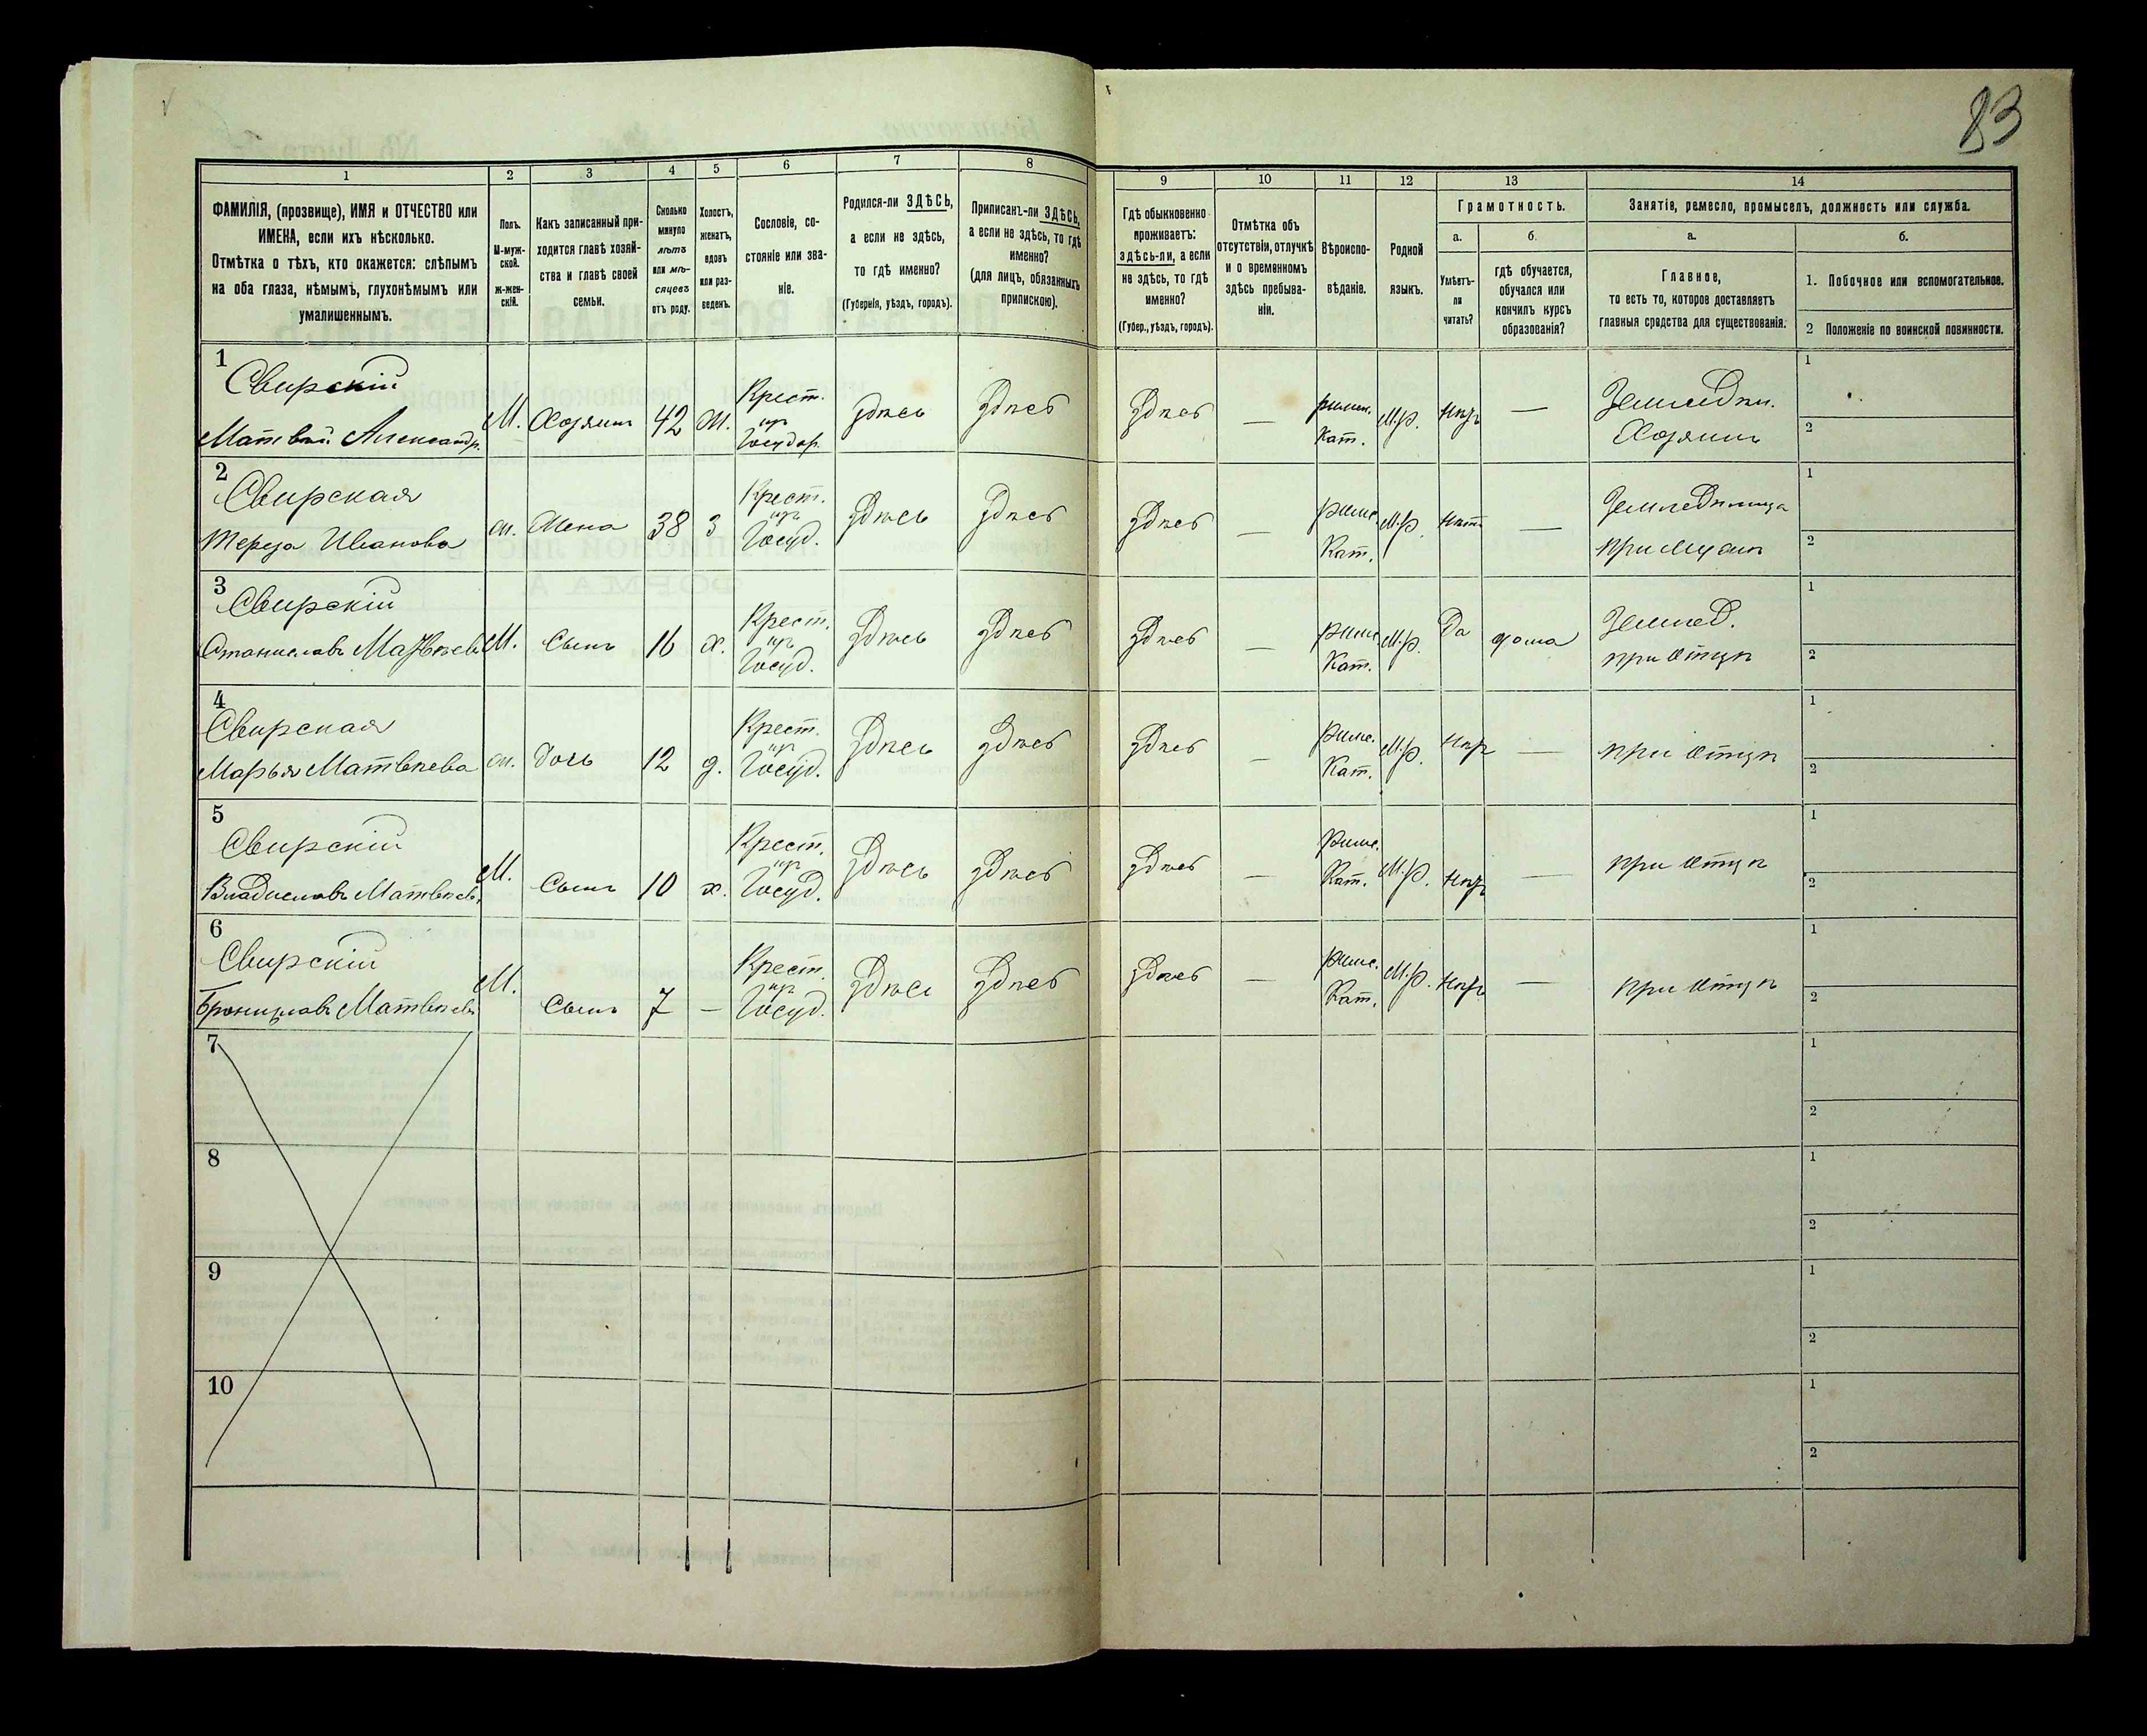 83
1
2
3
4
5
6
7
8
9
10
11
12
13
14
ФАМИЛІЯ, (прозвище), ИМЯ и ОТЧЕСТВО или
ИМЕНА, если ихъ нѣсколько.
Отмѣтка о тѣхъ, кто окажется: слѣпымъ
на оба глаза, нѣмымъ, глухонѣмымъ или
умалишеннымъ.
Полъ.
М-муж-
ской.
ж-жен-
скій.
Какъ записанный при-
ходится главѣ хозяй-
ства и главѣ своей
семьи.
Сколько
минуло
лѣтъ
или мѣ-
сяцевъ
отъ роду.
Холостъ,
женатъ,
вдовъ
или раз-
веденъ.
Сословіе, со-
стояніе или зва-
ніе.
Родился-ли ЗДѢСЬ,
а если не здѣсь,
то гдѣ именно?
(Губернія, уѣздъ, городъ).
Приписанъ-ли ЗДѢСЬ,
а если не здѣсь, то гдѣ
именно?
(для лицъ, обязанныхъ
припискою).
Гдѣ обыкновенно
проживаетъ:
здѣсь-ли, а если
не здѣсь, то гдѣ
именно?
(Губер., уѣздъ, городъ).
Отмѣтка объ
отсутствіи, отлучкѣ
и о временномъ
здѣсь пребыва-
ніи.
Вѣроиспо-
вѣданіе.
Родной
языкъ.
Грамотность.
а.
Умѣетъ-
ли
читать?
б.
гдѣ обучается,
обучался или
кончилъ курсъ
образованія?
Занятіе, ремесло, промыселъ, должность или служба.
а.
Главное,
то есть то, которое доставляетъ
главныя средства для существованія.
б.
1. Побочное или вспомогательное.
2 Положеніе по воинской повинности.
1
Свирскій
Матвѣй Александр.
М.
Хозяинъ
42
Ж.
Крест.
изъ
Государ.
здѣсь
здѣсь
здѣсь
—
римск.
Кат.
М.р.
нѣтъ
—
Земледѣл.
Хозяинъ
1
2
2
Свирская
Тереза Иванова
ж.
Жена
38
З
Крест.
изъ
Госуд.
здѣсь
здѣсь
здѣсь
—
римс.
Кат.
М.р.
нѣтъ
—
Земледѣлица
при мужѣ
1
2
3
Свирскій
Станиславъ Матвѣевъ
М.
Сынъ
16
х.
Крест.
изъ
Госуд.
здѣсь
здѣсь
здѣсь
—
римс.
Кат.
М.р.
Да
дома
Землед.
при отцѣ
1
2
4
Свирская
Марья Матвѣева
ж.
дочь
12
д.
Крест.
изъ
Госуд.
здѣсь
здѣсь
здѣсь
—
римс.
Кат.
М.р.
нѣтъ
—
при отцѣ
1
2
5
Свирскій
Владиславъ Матвѣевъ
М.
Сынъ
10
х.
Крест.
изъ
Госуд.
здѣсь
здѣсь
здѣсь
—
римс.
Кат.
М.р.
нѣтъ
—
при отцѣ
1
2
6
Свирскій
Брониславъ Матвѣевъ
М.
Сынъ
7
—
Крест.
изъ
Госуд.
здѣсь
здѣсь
здѣсь
—
римс.
Кат.
М.р.
нѣтъ
—
при отцѣ
1
2
7
1
2
8
1
2
9
1
2
10
1
2